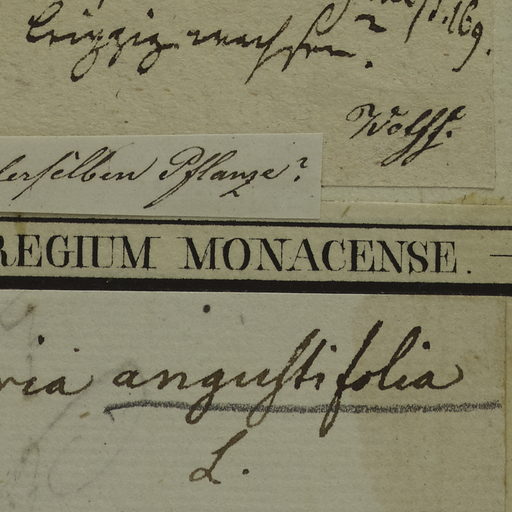 Leipzig wachsen.
169.
Wolff.
derselben Pflanze?
REGIUM MONACENSE.
ria angustifolia
L.